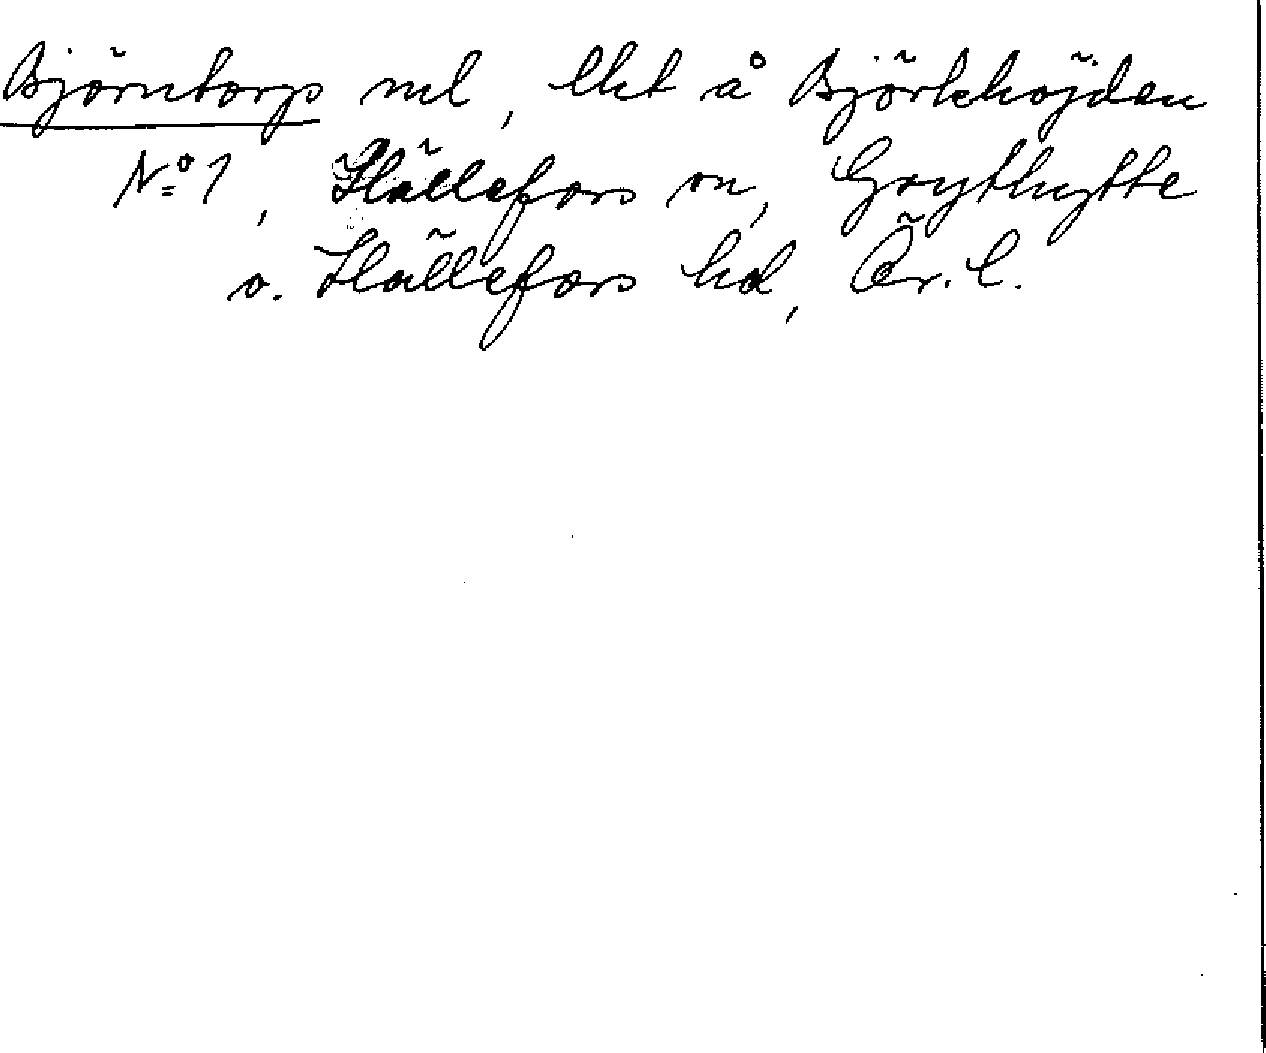 Björntorp nel, lht å Björkhöjden
No 1, Hällefors sn, Grythytte
o. Hällefors hd, Ör. l.